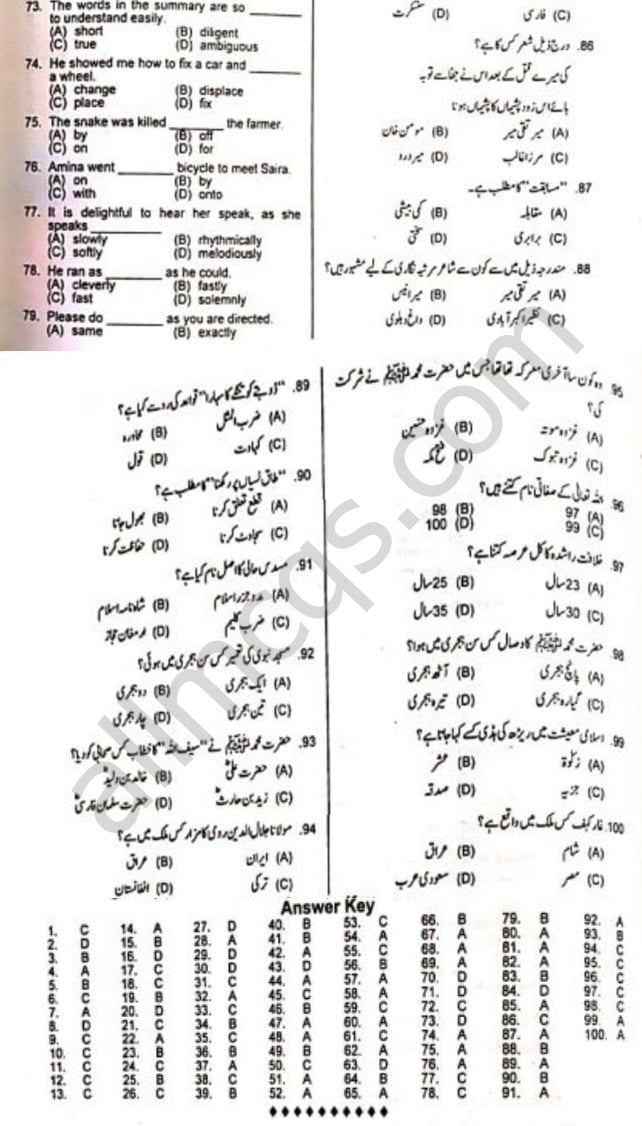 73. The words in the summary are so ______
to understand easily.
(A) short (B) diligent
(C) true (D) ambiguous
74. He showed me how to fix a car and ______
a wheel.
(A) change (B) displace
(C) place (D) fix
75. The snake was killed ______ the farmer.
(A) by (B) off
(C) on (D) for
76. Amina went ______ bicycle to meet Saira.
(A) on (B) by
(C) with (D) onto
77. It is delightful to hear her speak, as she
speaks ______
(A) slowly (B) rhythmically
(C) softly (D) melodiously
78. He ran as ______ as he could.
(A) cleverly (B) fastly
(C) fast (D) solemnly
79. Please do ______ as you are directed.
(A) same (B) exactly
(C) فارسی (D) سنسکرت
86. درج ذیل شعر کس کا ہے؟
کی میرے قتل کے بعد اس نے جفا سے توبہ
ہائے اس زود پشیماں کا پشیماں ہونا
(A) میر تقی میر (B) مومن خان
(C) مرزا غالب (D) میر درد
87. "مسابقت" کا مطلب ہے۔
(A) مقابلہ (B) کمی بیشی
(C) برابری (D) سختی
88. مندرجہ ذیل میں سے کون سے شاعر مرثیہ نگاری کے لیے مشہور ہیں؟
(A) میر تقی میر (B) میر انیس
(C) نظیر اکبر آبادی (D) داغ دہلوی
89. "ڈوبتے کو تنکے کا سہارا" قواعد کی رو سے کیا ہے؟
(A) ضرب المثل (B) محاورہ
(C) کہاوت (D) قول
90. "طاق نسیاں پر رکھنا" کا مطلب ہے؟
(A) قطع تعلق کرنا (B) بھول جانا
(C) سجاوٹ کرنا (D) حفاظت کرنا
91. مسدس حالی کا اصل نام کیا ہے؟
(A) مدوجزر اسلام (B) شاہنامہ اسلام
(C) ضرب کلیم (D) ارمغان حجاز
92. مسجد نبوی کی تعمیر کس سن ہجری میں ہوئی؟
(A) ایک ہجری (B) دو ہجری
(C) تین ہجری (D) چار ہجری
93. حضرت محمد ﷺ نے "سیف اللہ" کا خطاب کس صحابی کو دیا؟
(A) حضرت علیؓ (B) خالد بن ولیدؓ
(C) زید بن حارثؓ (D) حضرت سلمان فارسیؓ
94. مولانا جلال الدین رومی کا مزار کس ملک میں ہے؟
(A) ایران (B) عراق
(C) ترکی (D) افغانستان
95. وہ کون سا آخری معرکہ تھا جس میں حضرت محمد ﷺ نے شرکت
کی؟
(A) غزوہ موتہ (B) غزوہ حنین
(C) غزوہ تبوک (D) فتح مکہ
96. اللہ تعالیٰ کے صفاتی نام کتنے ہیں؟
(A) 97 (B) 98
(C) 99 (D) 100
97. خلافت راشدہ کا کل عرصہ کتنا ہے؟
(A) 23سال (B) 25سال
(C) 30سال (D) 35سال
98. حضرت محمد ﷺ کا وصال کس سن ہجری میں ہوا؟
(A) پانچ ہجری (B) آٹھ ہجری
(C) گیارہ ہجری (D) تیرہ ہجری
99. اسلامی معیشت میں ریڑھ کی ہڈی کسے کہا جاتا ہے؟
(A) زکوٰۃ (B) عشر
(C) جزیہ (D) صدقہ
100. غار کہف کس ملک میں واقع ہے؟
(A) شام (B) عراق
(C) مصر (D) سعودی عرب
allmcqs.com
Answer Key
1. C 14. A 27. D 40. B 53. C 66. B 79. B 92. A
2. D 15. B 28. A 41. B 54. A 67. A 80. A 93. B
3. B 16. D 29. D 42. A 55. C 68. A 81. A 94. C
4. A 17. C 30. D 43. D 56. B 69. A 82. A 95. C
5. B 18. C 31. C 44. A 57. A 70. D 83. B 96. C
6. C 19. B 32. A 45. C 58. A 71. D 84. D 97. C
7. A 20. D 33. C 46. B 59. C 72. C 85. A 98. C
8. D 21. C 34. B 47. A 60. A 73. D 86. C 99. A
9. C 22. A 35. C 48. A 61. C 74. A 87. A 100. A
10. C 23. B 36. B 49. B 62. A 75. A 88. B
11. C 24. C 37. A 50. C 63. D 76. A 89. A
12. C 25. B 38. C 51. A 64. B 77. C 90. B
13. C 26. C 39. B 52. A 65. A 78. C 91. A